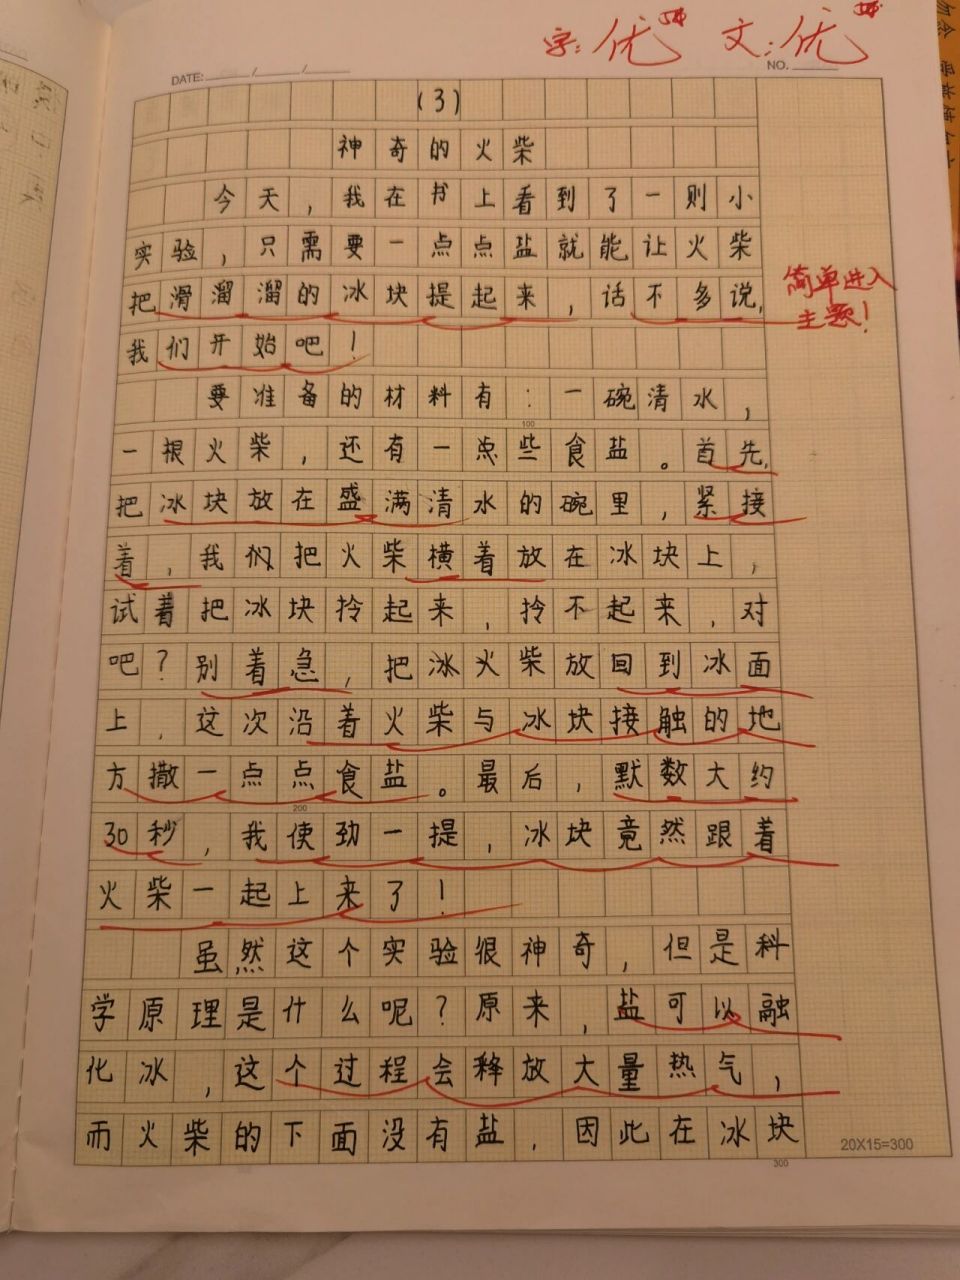 字:优 文:优
DATE: / /
NO.
(3)
神奇的火柴
今天,我在书上看到了一则小
实验,只需要一点点盐就能让火柴
把滑溜溜的冰块提起来,话不多说,
简单进入
主题!
我们开始吧!
要准备的材料有:一碗清水,
100
一根火柴,还有一点些食盐。首先,
把冰块放在盛满清水的碗里,紧接
着,我们把火柴横着放在冰块上,
试着把冰块拎起来,拎不起来,对
吧?别着急,把冰火柴放回到冰面
上,这次沿着火柴与冰块接触的地
方撒一点点食盐。最后,默数大约
200
30秒,我使劲一提,冰块竟然跟着
火柴一起上来了!
虽然这个实验很神奇,但是科
学原理是什么呢?原来,盐可以融
化冰,这个过程会释放大量热气,
而火柴的下面没有盐,因此在冰块
20X15=300
300